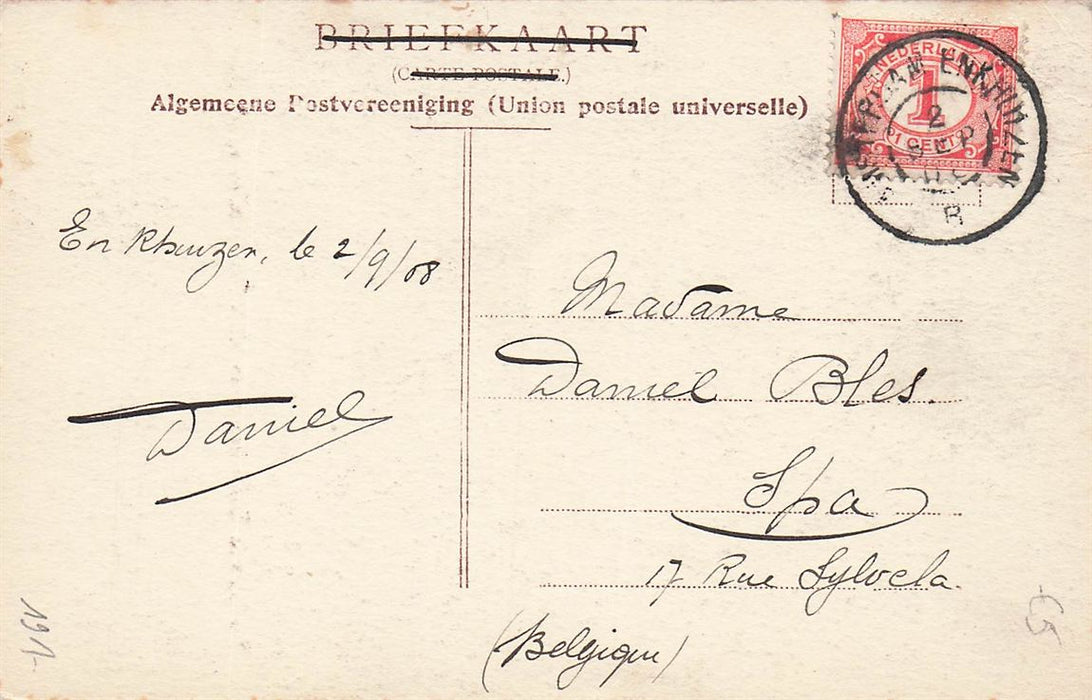 BRIEFKAART
(CARTE POSTALE.)
Algemeene Postvereeniging (Union postale universelle)
NEDERLAND
1
1 CENT
ENKHUIZEN
2
SEP
B
Enkhuizen, le 2/9/08
Daniel
Madame
Daniel Bles.
Spa
17 Rue Sylvela.
(Belgique)
191-